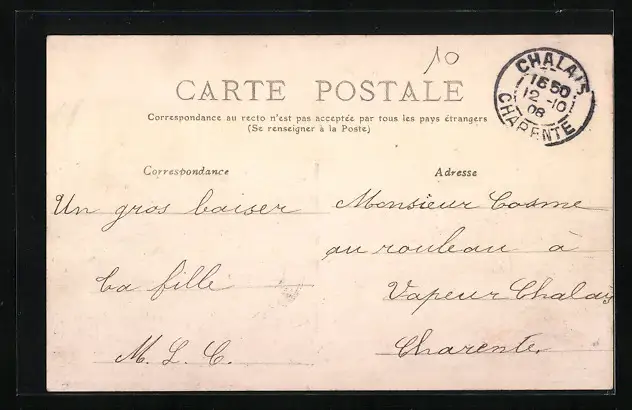 10
CHALAIS
16 50
12 -10
08
CHARENTE
CARTE POSTALE
Correspondance au recto n'est pas acceptée par tous les pays étrangers
(Se renseigner à la Poste)
Correspondance
Adresse
Un gros baiser
Ta fille
M. L. C.
Monsieur Cosme
au rouleau à
Vapeur Chalais
Charente.